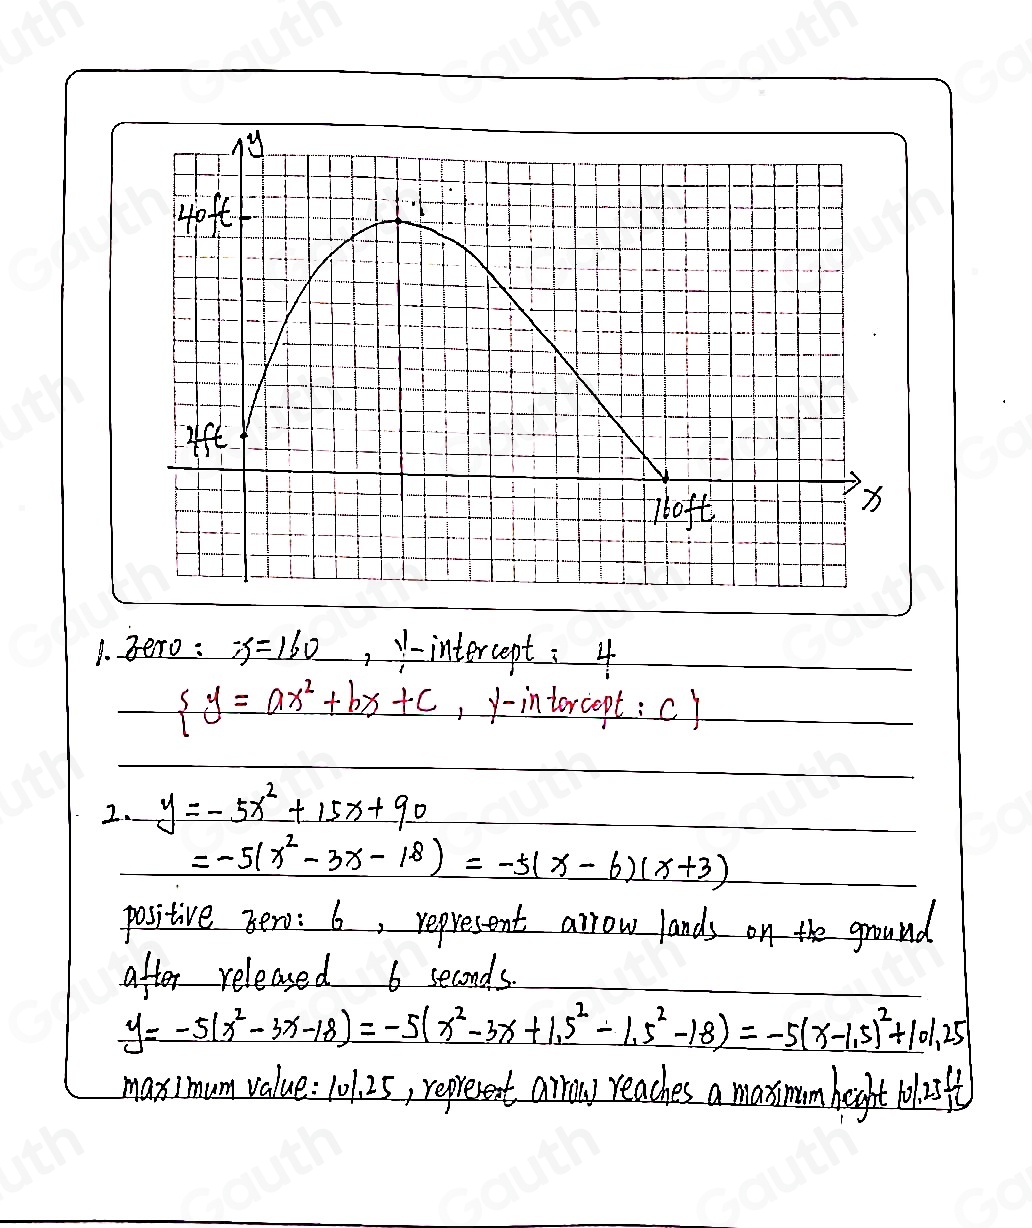 y
40ft
4ft
160ft
x
1. zero: x=160, y-intercept: 4
{ y = ax² + bx + c, y-intercept: c }
2. y = -5x² + 15x + 90
= -5(x² - 3x - 18) = -5(x - 6)(x+3)
positive zero: 6, represent arrow lands on the ground
after released 6 seconds.
y = -5(x² - 3x - 18) = -5(x² - 3x + 1.5² - 1.5² - 18) = -5(x - 1.5)² + 101.25
maximum value: 101.25, represent arrow reaches a maximum height 101.25ft